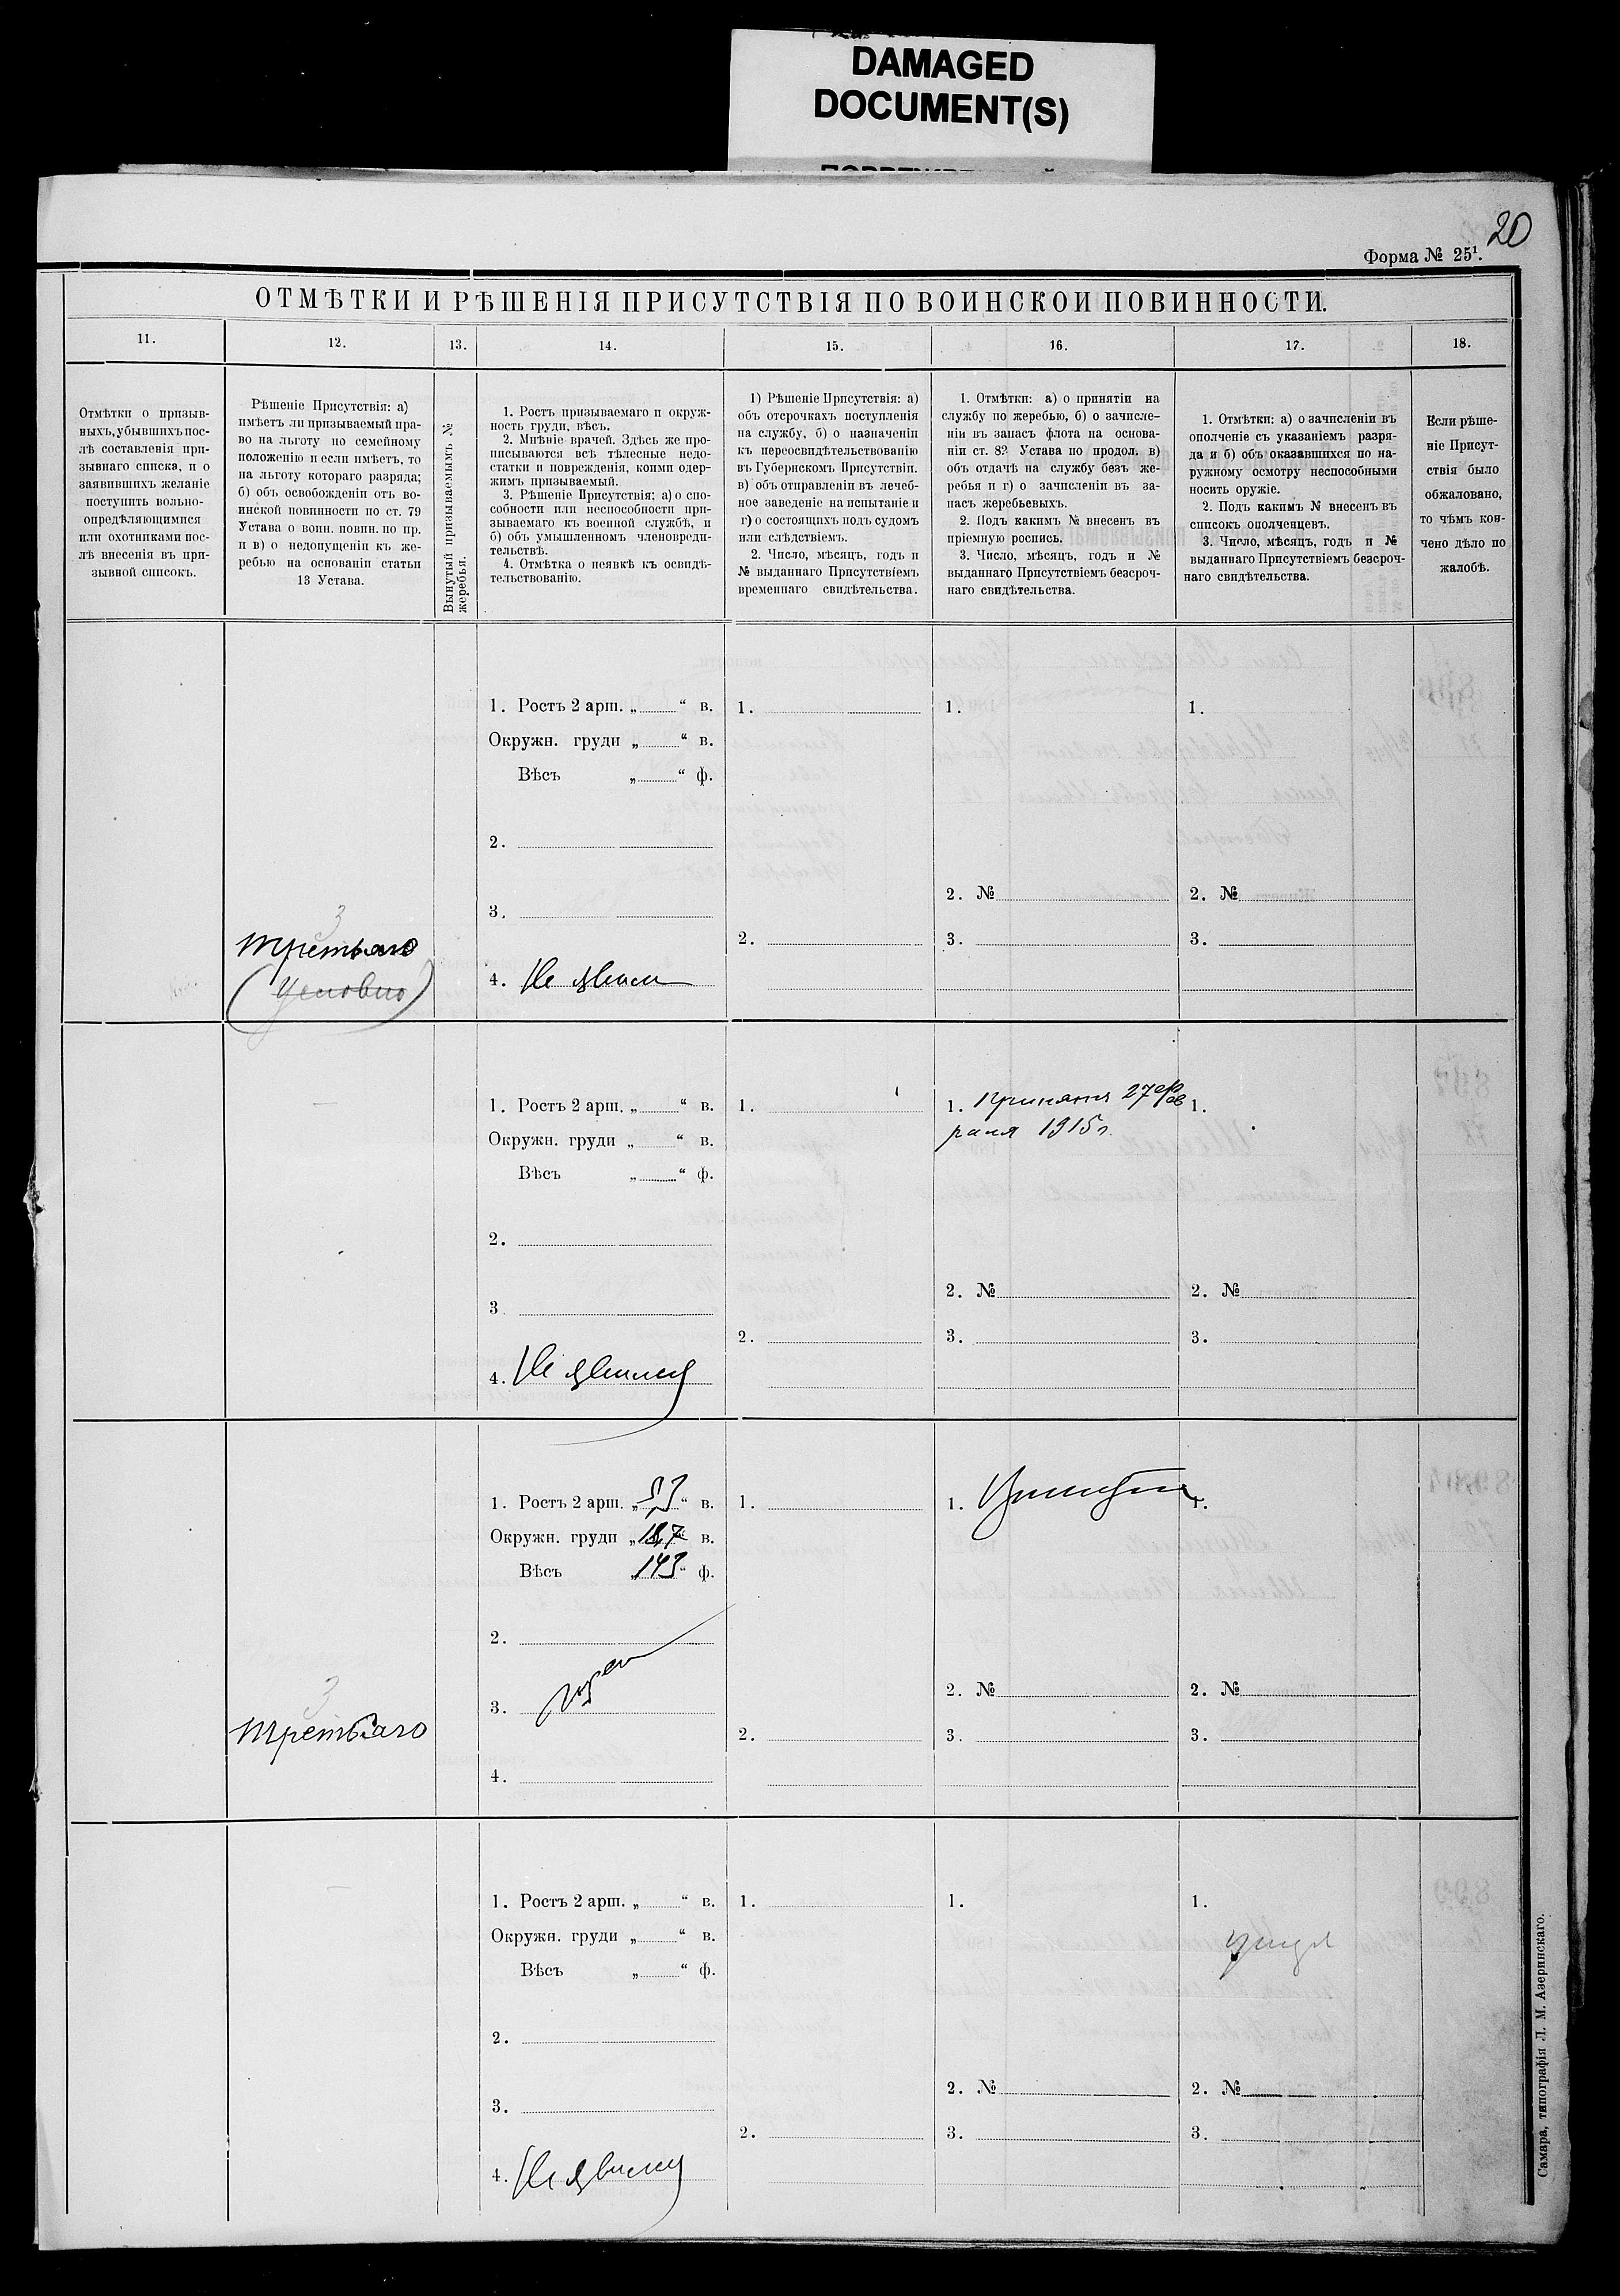 DAMAGED
DOCUMENT(S)
20
Форма № 25¹.
ОТМѢТКИ И РѢШЕНІЯ ПРИСУТСТВІЯ ПО ВОИНСКОЙ ПОВИННОСТИ.
11. 12. 13. 14. 15. 16. 17. 18.
Отмѣтки о призыв-
ныхъ, убывшихъ пос-
лѣ составленія при-
зывнаго списка, и о
заявившихъ желаніе
поступить вольно-
опредѣляющимися
или охотниками пос-
лѣ внесенія въ при-
зывной списокъ.
Рѣшеніе Присутствія: а)
имѣетъ ли призываемый пра-
во на льготу по семейному
положенію и если имѣетъ, то
на льготу котораго разряда;
б) объ освобожденіи отъ во-
инской повинности по ст. 79
Устава о воин. повин. по пр.
и в) о недопущеніи къ же-
ребью на основаніи статьи
13 Устава.
Вынутый призываемымъ №
жеребья.
1. Ростъ призываемаго и окруж-
ность груди, вѣсъ.
2. Мнѣніе врачей. Здѣсь же про-
писываются всѣ тѣлесные недо-
статки и поврежденія, коими одер-
жимъ призываемый.
3. Рѣшеніе Присутствія: а) о спо-
собности или неспособности при-
зываемаго къ военной службѣ, и
б) объ умышленномъ членовреди-
тельствѣ.
4. Отмѣтка о неявкѣ къ освидѣ-
тельствованію.
1) Рѣшеніе Присутствія: а)
объ отсрочкахъ поступленія
на службу, б) о назначеніи
къ переосвидѣтельствованію
въ Губернскомъ Присутствіи.
в) объ отправленіи въ лечеб-
ное заведеніе на испытаніе и
г) о состоящихъ подъ судомъ
или слѣдствіемъ.
2. Число, мѣсяцъ, годъ и
№ выданнаго Присутствіемъ
временнаго свидѣтельства.
1. Отмѣтки: а) о принятіи на
службу по жеребью, б) о зачисле-
ніи въ запасъ флота на основа-
ніи ст. 82 Устава по продол. в)
объ отдачѣ на службу безъ же-
ребья и г) о зачисленіи въ за-
пасъ жеребьевыхъ.
2. Подъ какимъ № внесенъ въ
пріемную роспись.
3. Число, мѣсяцъ, годъ и №
выданнаго Присутствіемъ безсроч-
наго свидѣтельства.
1. Отмѣтки: а) о зачисленіи въ
ополченіе съ указаніемъ разря-
да и б) объ оказавшихся по на-
ружному осмотру неспособными
носить оружіе.
2. Подъ какимъ № внесенъ въ
списокъ ополченцевъ.
3. Число, мѣсяцъ, годъ и №
выданнаго Присутствіемъ безсроч-
наго свидѣтельства.
Если рѣше-
ніе Присут-
ствія было
обжаловано,
то чѣмъ кон-
чено дѣло по
жалобѣ.
1. Ростъ 2 арш. „ “ в. 1. 1. 1.
Окружн. груди „ “ в.
Вѣсъ „ “ ф.
2.
2. № 2. №
3.
3
третьяго
2. 3. 3.
(условно)
4. Не явился
1. Ростъ 2 арш. „ “ в. 1. 1. Принятъ 27 фев 1.
раля 1915 г.
Окружн. груди „ “ в.
Вѣсъ „ “ ф.
2.
2. № 2. №
3
2. 3. 3.
4. Не явился
1. Ростъ 2 арш. „ “ в. 1. 1. 1.
Окружн. груди „ “ в.
Вѣсъ „143“ ф.
2.
2. № 2. №
3. Годен
3
третьяго
2. 3. 3.
4.
1. Ростъ 2 арш. „ “ в. 1. 1. 1.
Окружн. груди „ “ в.
Вѣсъ „ “ ф.
2.
2. № 2. №
3.
2. 3. 3.
4. Не явился
Самара, типографія Л. М. Азеринскаго.